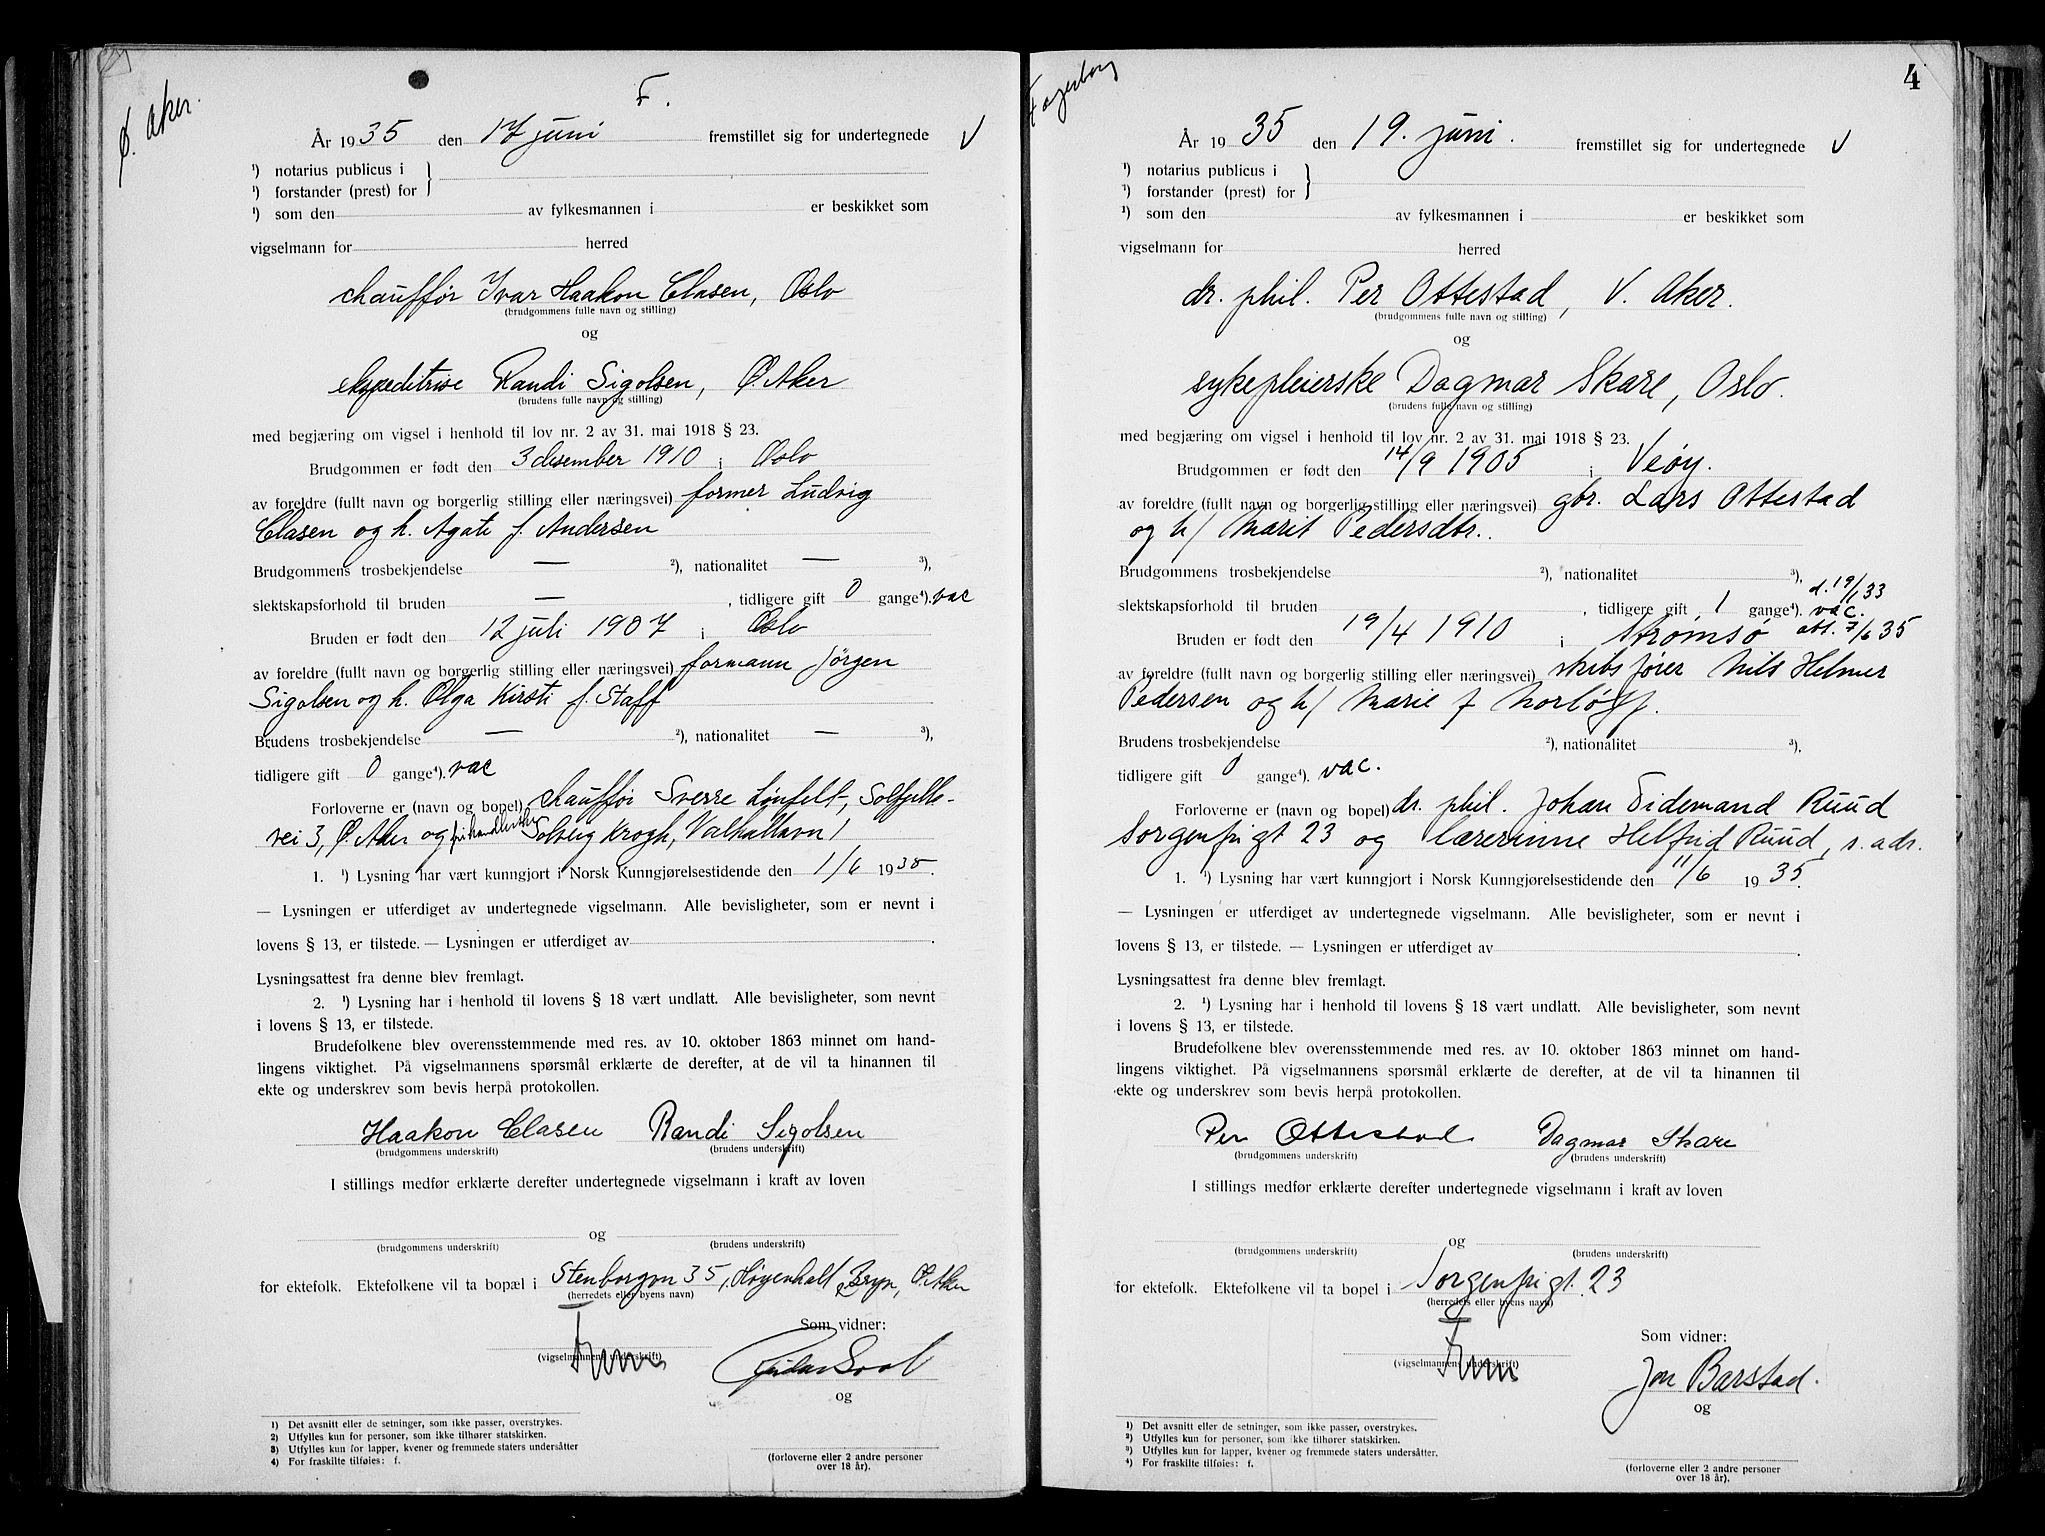 Ø. Aker.
F.
År 1935 den 17 juni fremstillet sig for undertegnede V
¹) notarius publicus i
¹) forstander (prest) for
¹) som den av fylkesmannen i er beskikket som
vigselmann for herred
chauffør Ivar Haakon Clasen, Oslo
(brudgommens fulle navn og stilling)
og
ekspeditrise Randi Sigolsen, Ø. Aker
(brudens fulle navn og stilling)
med begjæring om vigsel i henhold til lov nr. 2 av 31. mai 1918 § 23.
Brudgommen er født den 3 desember 1910 i Oslo
av foreldre (fullt navn og borgerlig stilling eller næringsvei) former Ludvig
Clasen og h. Agate f. Andersen
Brudgommens trosbekjendelse — ²), nationalitet — ³),
slektskapsforhold til bruden — , tidligere gift 0 gange⁴). vac
Bruden er født den 12 juli 1907 i Oslo
av foreldre (fullt navn og borgerlig stilling eller næringsvei) formann Jørgen
Sigolsen og h. Olga Kirsti f. Staff
Brudens trosbekjendelse — ²), nationalitet — ³),
tidligere gift 0 gange⁴). vac
Forloverne er (navn og bopel) chauffør Sverre Lønfelt, Solfjells-
vei 3, Ø. Aker og Solveig Krogh, Valhallavn 1
1. ¹) Lysning har vært kunngjort i Norsk Kunngjørelsestidende den 1/6 1935.
— Lysningen er utferdiget av undertegnede vigselmann. Alle bevisligheter, som er nevnt i
lovens § 13, er tilstede. — Lysningen er utferdiget av .
Lysningsattest fra denne blev fremlagt.
2. ¹) Lysning har i henhold til lovens § 18 vært undlatt. Alle bevisligheter, som nevnt
i lovens § 13, er tilstede.
Brudefolkene blev overensstemmende med res. av 10. oktober 1863 minnet om hand-
lingens viktighet. På vigselmannens spørsmål erklærte de derefter, at de vil ta hinannen til
ekte og underskrev som bevis herpå protokollen.
Haakon Clasen Randi Sigolsen
(brudgommens underskrift) (brudens underskrift)
I stillings medfør erklærte derefter undertegnede vigselmann i kraft av loven
og
(brudgommens underskrift) (brudens underskrift)
for ektefolk. Ektefolkene vil ta bopæl i Stenborgvn 35, Høyenhall, Bryn, Ø. Aker
(herredets eller byens navn)
Som vidner:
(vigselmannens underskrift)
og
1) Det avsnitt eller de setninger, som ikke passer, overstrykes.
2) Utfylles kun for personer, som ikke tilhører statskirken.
3) Utfylles kun for lapper, kvener og fremmede staters undersåtter
4) For fraskilte tilføies: f.
(forloverne eller 2 andre personer
over 18 år).
Fagerborg
4
År 1935 den 19. juni. fremstillet sig for undertegnede V
¹) notarius publicus i
¹) forstander (prest) for
¹) som den av fylkesmannen i er beskikket som
vigselmann for herred
dr. phil. Per Ottestad, V. Aker.
(brudgommens fulle navn og stilling)
og
sykepleierske Dagmar Skare, Oslo.
(brudens fulle navn og stilling)
med begjæring om vigsel i henhold til lov nr. 2 av 31. mai 1918 § 23.
Brudgommen er født den 14/9 1905 i Veøy.
av foreldre (fullt navn og borgerlig stilling eller næringsvei) gbr. Lars Ottestad
og h/ Marit Pedersdtr.
Brudgommens trosbekjendelse ²), nationalitet ³),
d. 19/1 33
slektskapsforhold til bruden , tidligere gift 1 gange⁴). vac.
Bruden er født den 19/4 1910 i Strømsø att. 7/6 35
av foreldre (fullt navn og borgerlig stilling eller næringsvei) skibsfører Nils Helmer
Pedersen og h/ Marie f
Brudens trosbekjendelse ²), nationalitet ³),
tidligere gift 0 gange⁴). vac.
Forloverne er (navn og bopel) dr. phil. Johan Tidemand Ruud
Sorgenfrigt 23 og lærerinne Helfrid Ruud, s. adr.
1. ¹) Lysning har vært kunngjort i Norsk Kunngjørelsestidende den 11/6 1935.
— Lysningen er utferdiget av undertegnede vigselmann. Alle bevisligheter, som er nevnt i
lovens § 13, er tilstede. — Lysningen er utferdiget av .
Lysningsattest fra denne blev fremlagt.
2. ¹) Lysning har i henhold til lovens § 18 vært undlatt. Alle bevisligheter, som nevnt
i lovens § 13, er tilstede.
Brudefolkene blev overensstemmende med res. av 10. oktober 1863 minnet om hand-
lingens viktighet. På vigselmannens spørsmål erklærte de derefter, at de vil ta hinannen til
ekte og underskrev som bevis herpå protokollen.
Per Ottestad Dagmar Skare
(brudgommens underskrift) (brudens underskrift)
I stillings medfør erklærte derefter undertegnede vigselmann i kraft av loven
og
(brudgommens underskrift) (brudens underskrift)
for ektefolk. Ektefolkene vil ta bopel i Sorgenfrigt. 23
(herredets eller byens navn)
Som vidner:
(vigselmannens underskrift)
Jon Barstad.
og
1) Det avsnitt eller de setninger, som ikke passer, overstrykes.
2) Utfylles kun for personer, som ikke tilhører statskirken.
3) Utfylles kun for lapper, kvener og fremmede staters undersåtter.
4) For fraskilte tilføies: f.
(forloverne eller 2 andre personer
over 18 år).